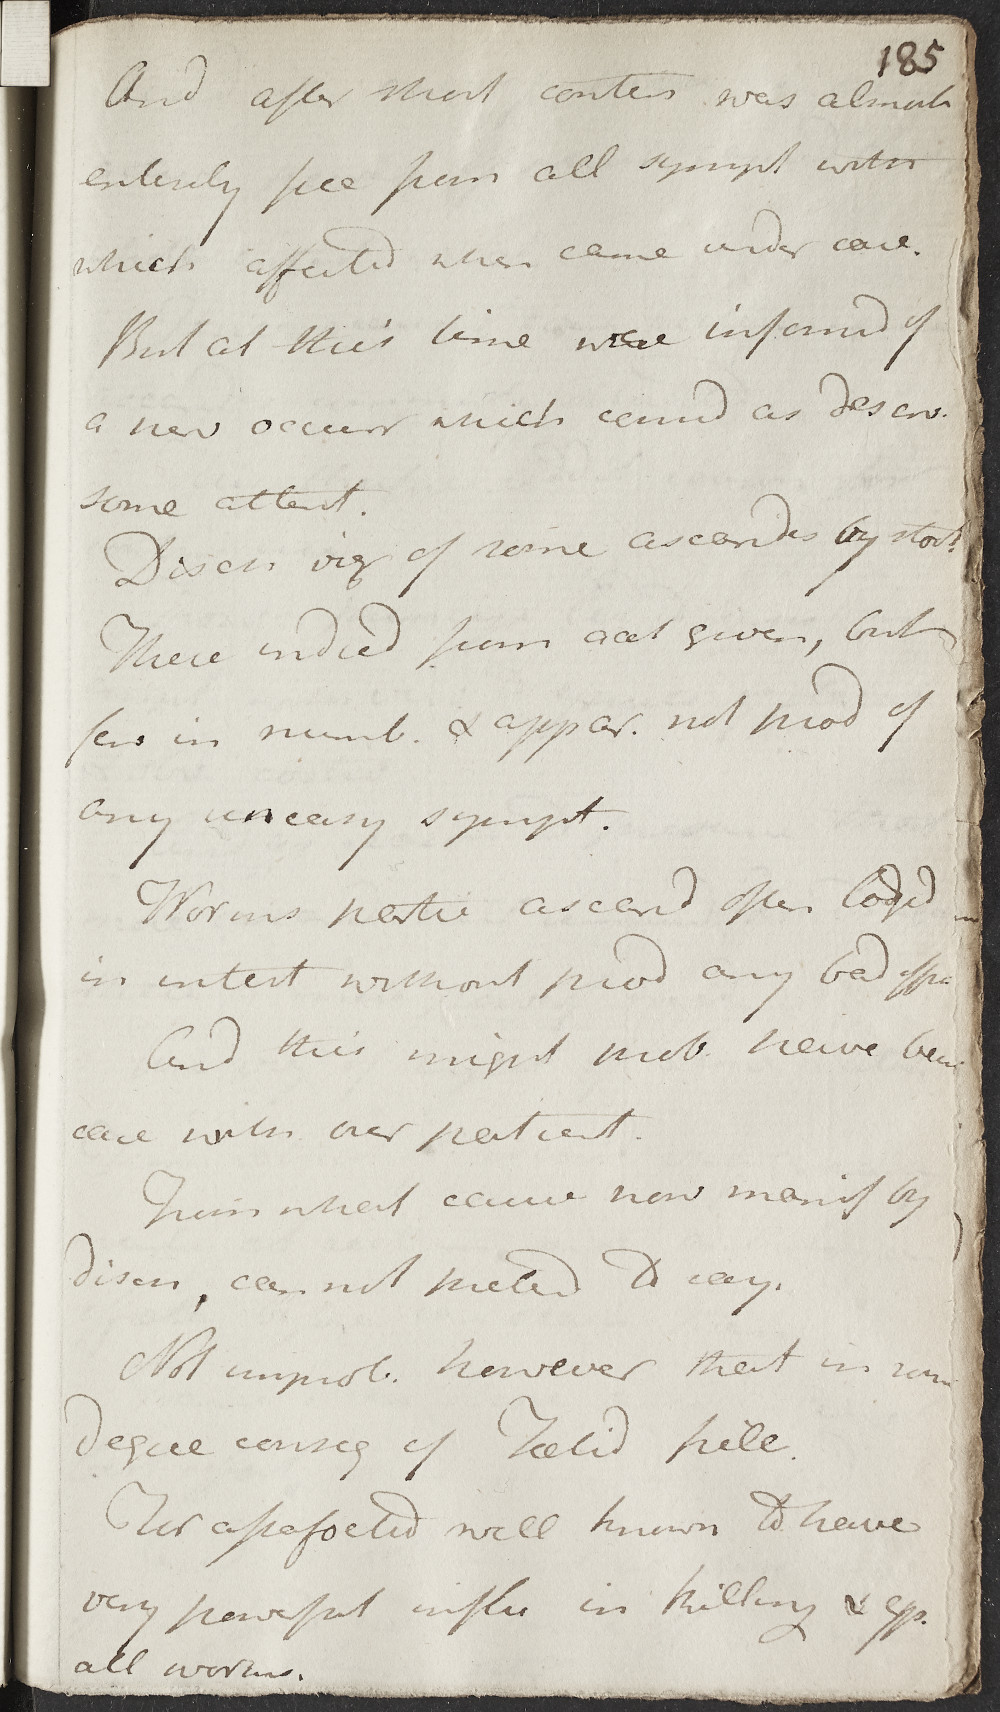 185
And after short contin was almost
entirely free from all sympt with
which affected when came under care.
But at this time were informd of
a new occurr which cannd as deserv.
some attent.
Disch viz of some ascarides by stool
There indeed from acct given, but
few in numb. & appar. not prod of
any uneasy sympt.
Worms partic ascarid often lodgd in
in intest without prod any bad effec
And this might prob. have been
case with our patient.
From what cause now manif by
disch, can not pretend to say.
Not improb. however that in some
degree conseq of Foetid pill.
For assafoetid well known to have
very powerful influ in killing & exp.
all worms.